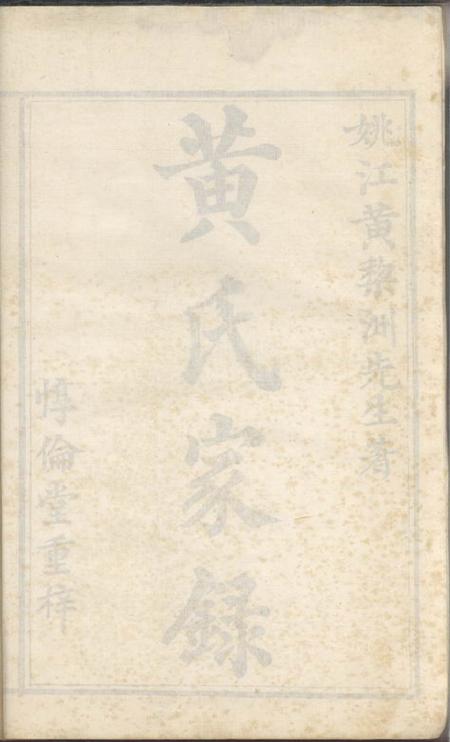 姚江黄黎洲先生著
黄氏家録
惇倫堂重梓